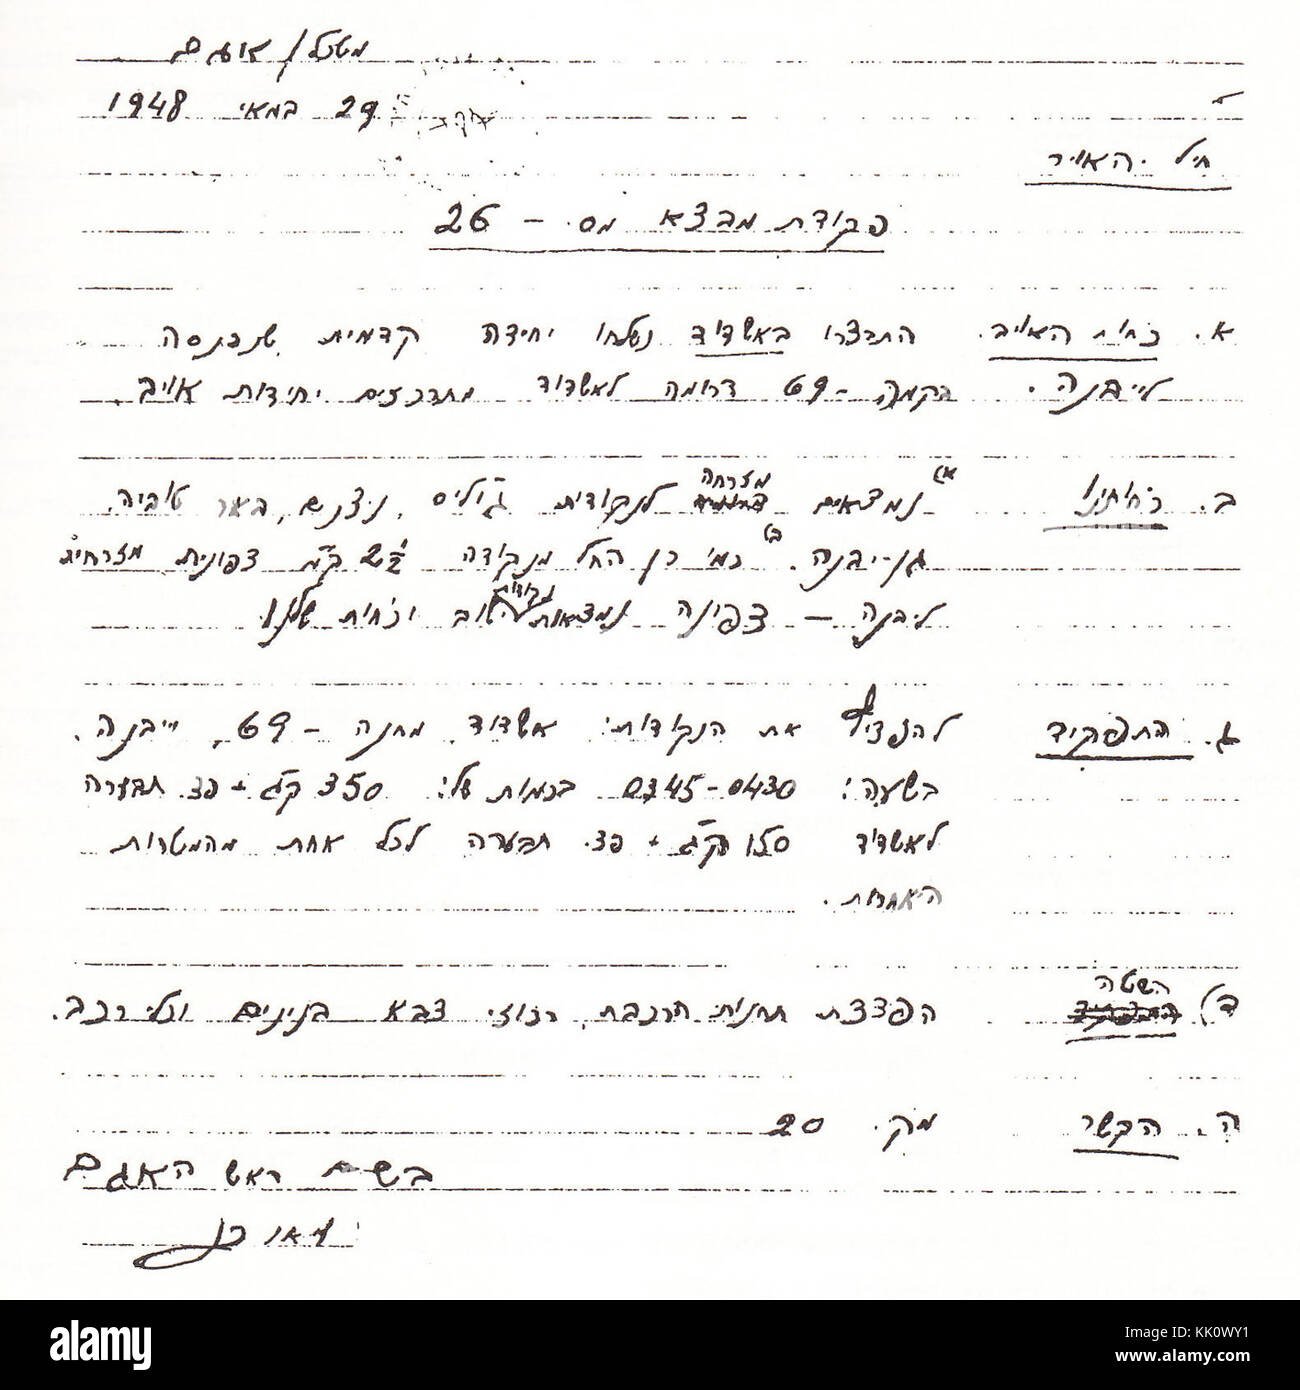 מטכל/אגם
29 במאי 1948
חיל האויר
פקודת מבצע מס. – 26
א. כחות האויב. התבצרו באשדוד נשלחו יחידה קדמית שנכנסה
לייבנה. בקמה -69 דרומה לאשדוד מתרכזים יחידות אויב.
ב. כחותינו א) נמצאים מזרחה לנקודות ג'וליס, ניצנים, באר טוביה,
גן-יבנה. ב) כמו כן החל מנקודה 2½ ק"מ צפונית מזרחית
ליבנה – צפונה נמצאות נקודות ישוב וכחות שלנו.
ג. התפקיד להפציץ את הנקודות: אשדוד, מחנה – 69, ייבנה.
בשעה: 0345-0430 בכמות של: 350 ק"ג + פצ. תבערה
לאשדוד 150 ק"ג + פצ. תבערה לכל אחת מהמטרות
האחרות.
ד) השטה הפצצת תחנות הרכבת, רכוזי צבא בנינים וכלי רכב.
ה. הקשר מק. 20
בשם ראש האגם
alamy
Image ID: KK0WY1
www.alamy.com